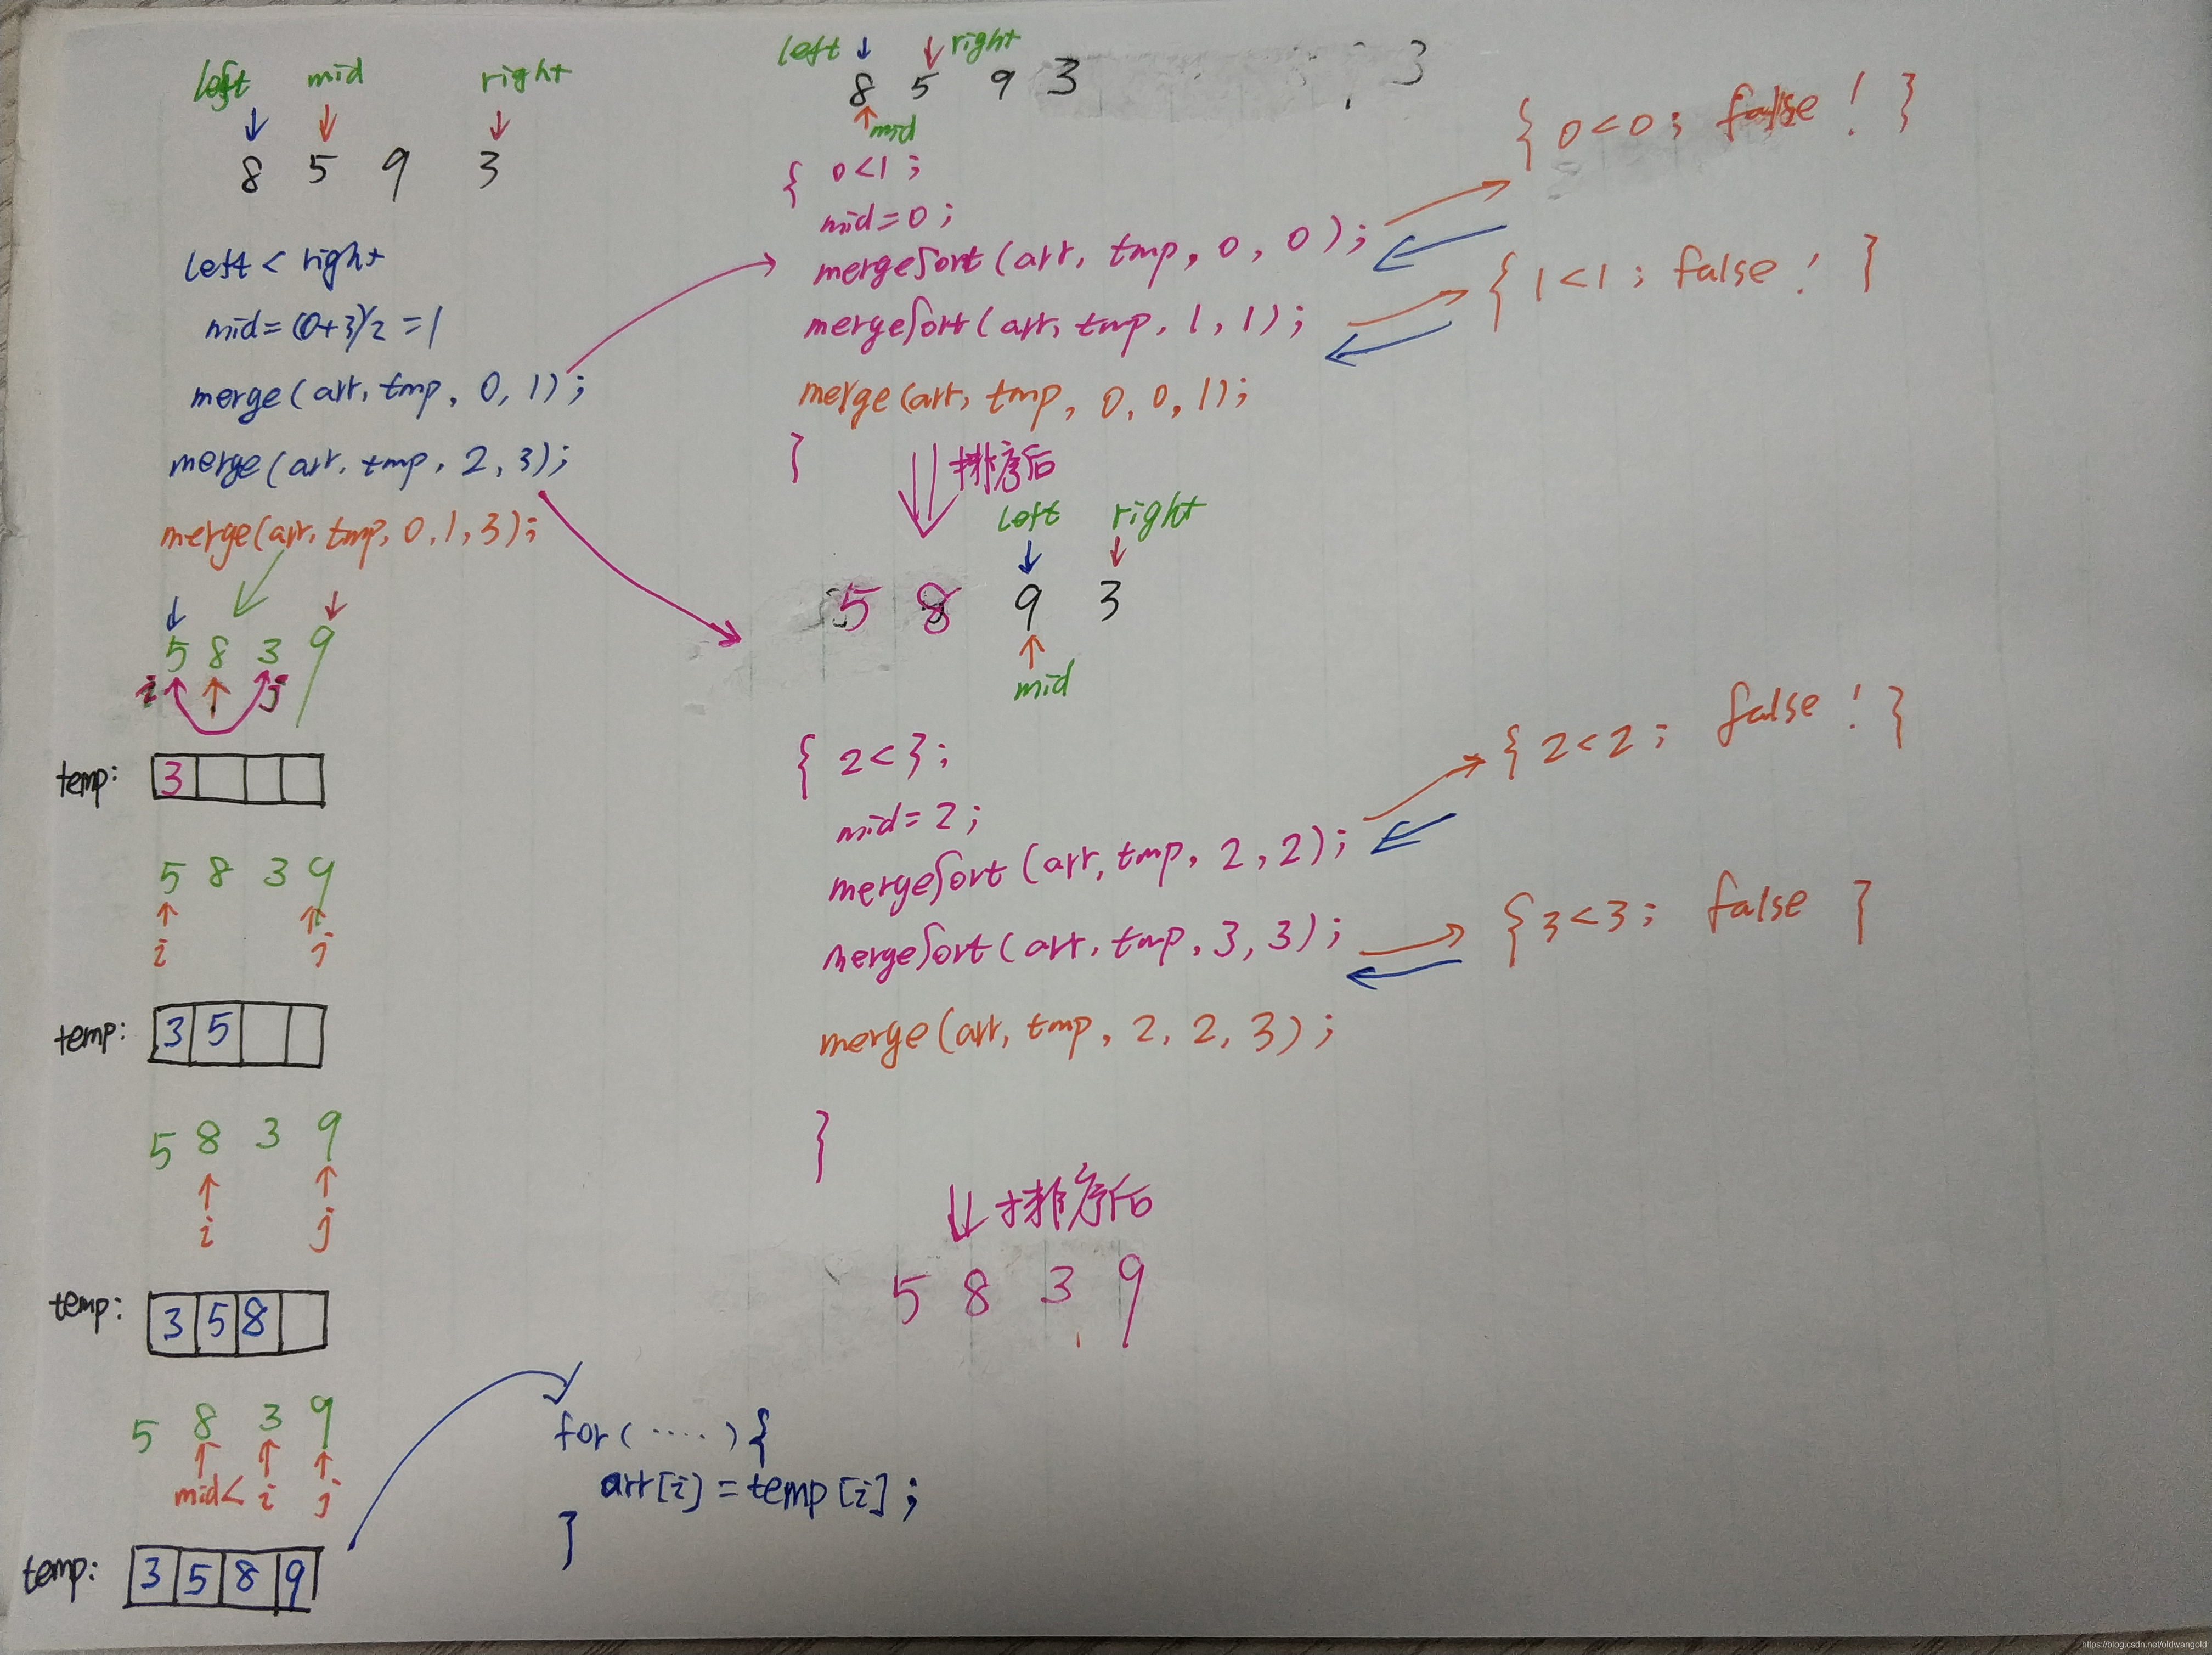 left mid right
8 5 9 3
left < right
mid=(0+3)/2 =1
merge(arr, tmp, 0, 1);
merge(arr, tmp, 2, 3);
merge(arr, tmp, 0, 1, 3);
5 8 3 9
i j
temp: 3
5 8 3 9
i j
temp: 3 5
5 8 3 9
i j
temp: 3 5 8
5 8 3 9
mid< i j
temp: 3 5 8 9
for( ····· ){
arr[i] = temp[i];
}
left right
8 5 9 3 3
mid
{ 0<1 ;
mid=0 ;
mergeSort(arr, tmp, 0, 0);
mergeSort(arr, tmp, 1, 1);
merge(arr, tmp, 0, 0, 1);
}
{ 0<0 ; false ! }
{ 1<1 ; false ! }
排序后
left right
5 8 9 3
mid
{ 2<3 ;
mid=2 ;
mergeSort(arr, tmp, 2, 2);
mergeSort(arr, tmp, 3, 3);
merge(arr, tmp, 2, 2, 3);
}
{ 2<2 ; false ! }
{ 3<3 ; false }
排序后
5 8 3 9
https://blog.csdn.net/oldwangold